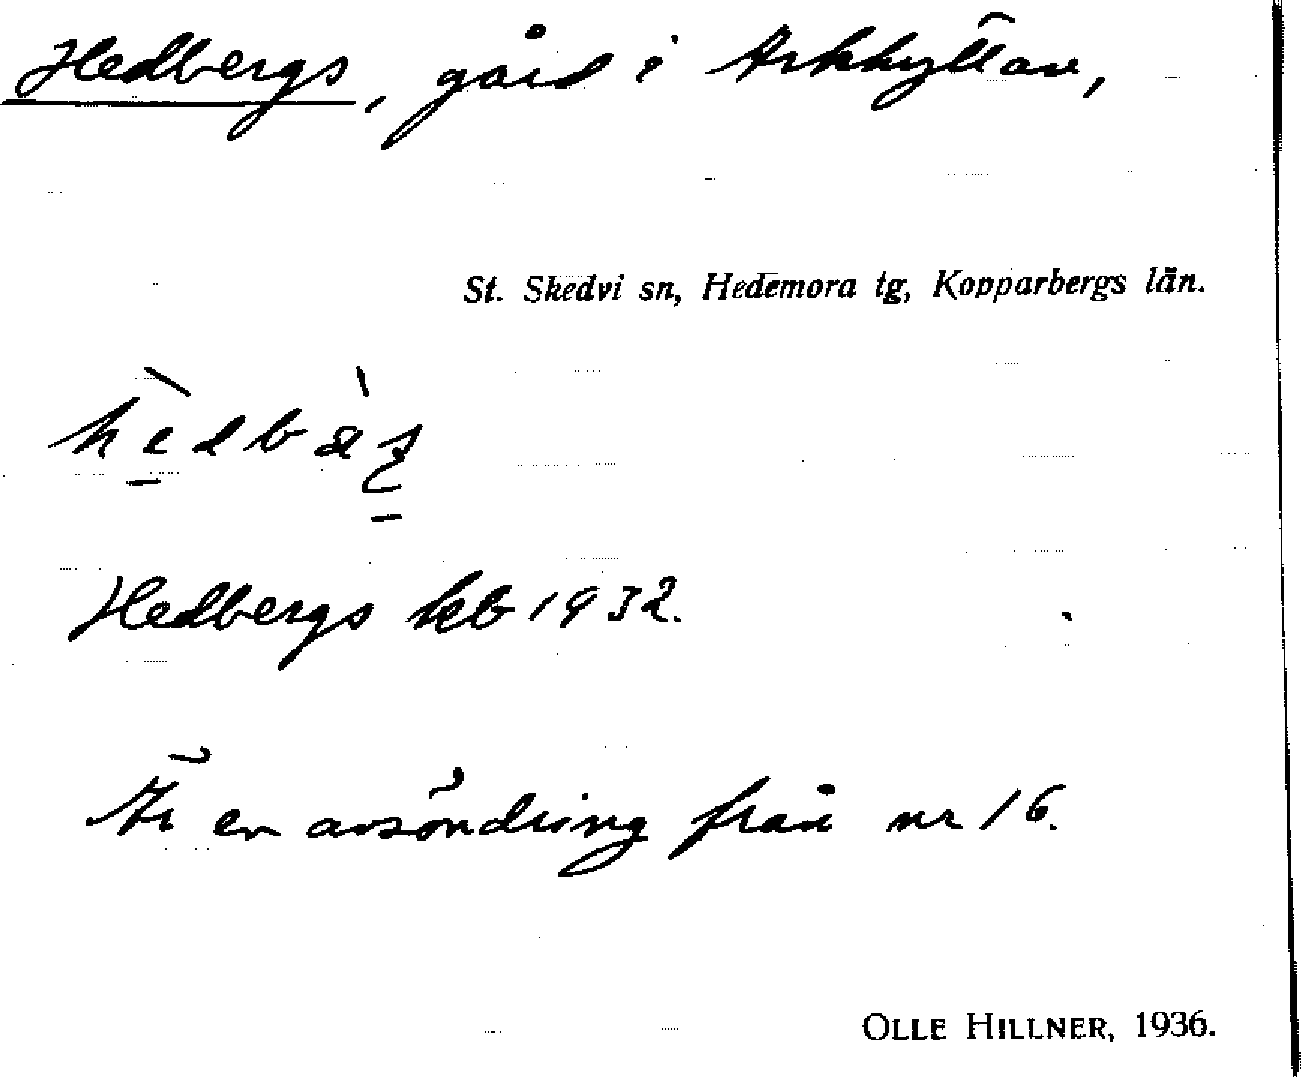 Hedbergs, gård i Arkhyttan,
St. Skedvi sn, Hedemora tg, Kopparbergs län.
Hedbergs kb 1932.
Är en avsöndring från nr 16.
OLLE HILLNER, 1936.